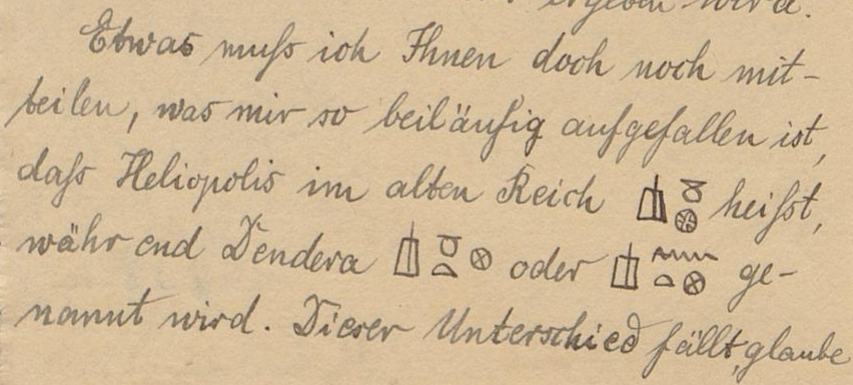 ergeben wird.
Etwas muſs ich Ihnen doch noch mit-
teilen, was mir so beiläufig aufgefallen ist,
daſs Heliopolis im alten Reich 𓉺𓏌𓊖 heiſst,
während Dendera 𓉺𓏌𓏏𓊖 oder 𓉺𓈖𓏏𓊖 ge-
nannt wird. Dieser Unterschied fällt, glaube